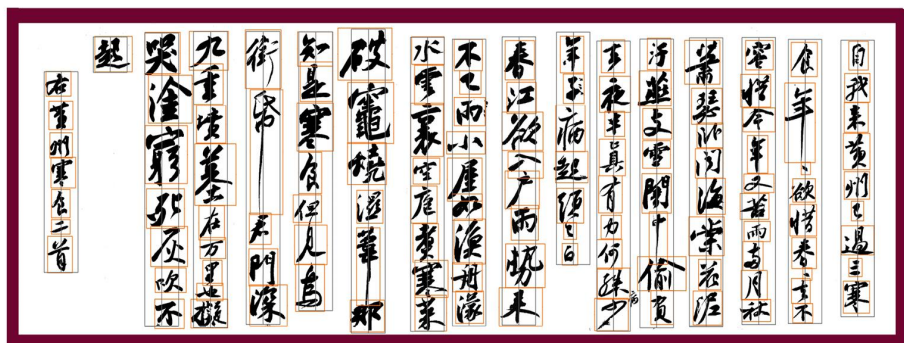 自我来黄州已過三寒
食年〻欲惜春〻去不
容惜今年又苦雨兩月秋
蕭瑟卧聞海棠花泥
汙燕支雪闇中偷負
去夜半真有力何殊少
年子病起須已白
春江欲入户雨勢来
不已雨小屋如漁舟濛
水雲裏空庖煮寒菜
破竈燒濕葦那
知是寒食但見烏
銜帋君門深
九重墳墓在万里也擬
哭塗窮死灰吹不
起
右黄州寒食二首